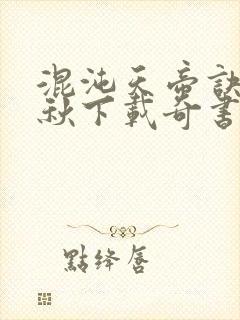 混沌天帝訣
秋下載奇書
點絳唇